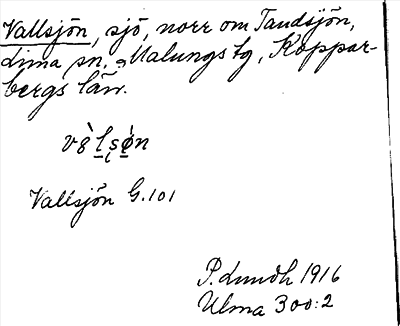 Vallsjön, sjö, norr om Tandsjön,
Lima sn, Malungs tg, Koppar-
bergs län.
Vallsjön G.101
P. Lundh 1916
Ulma 300:2